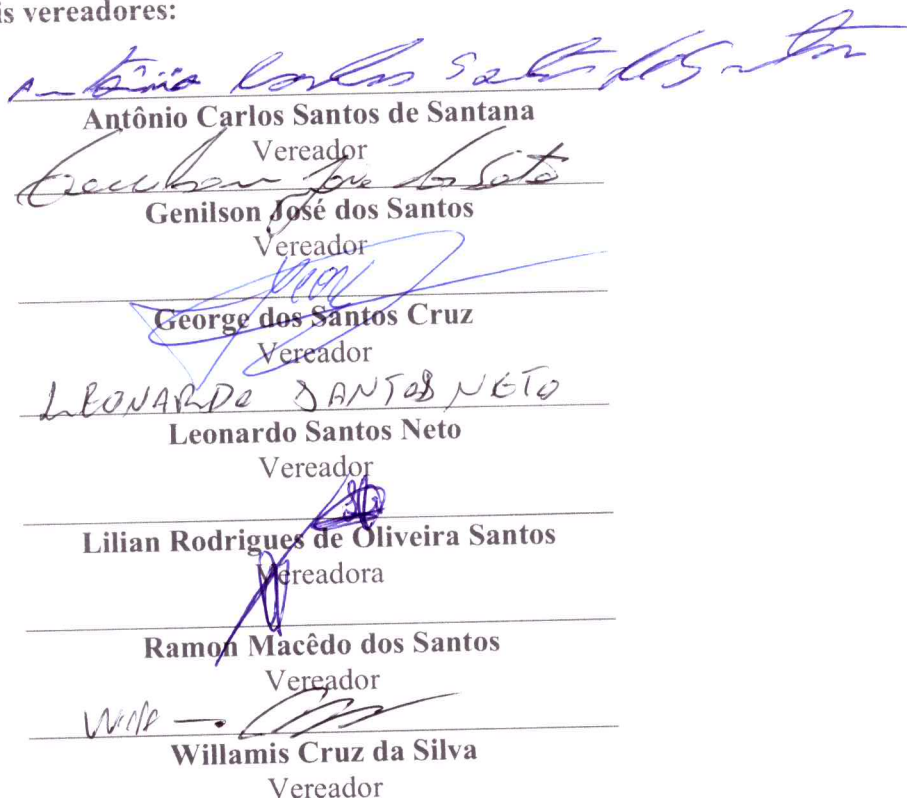 is vereadores:
Antônio Carlos Santos de Santana
Vereador
Genilson José dos Santos
Vereador
George dos Santos Cruz
Vereador
LEONARDO SANTOS NETO
Leonardo Santos Neto
Vereador
Lilian Rodrigues de Oliveira Santos
Vereadora
Ramon Macêdo dos Santos
Vereador
Willamis Cruz da Silva
Vereador